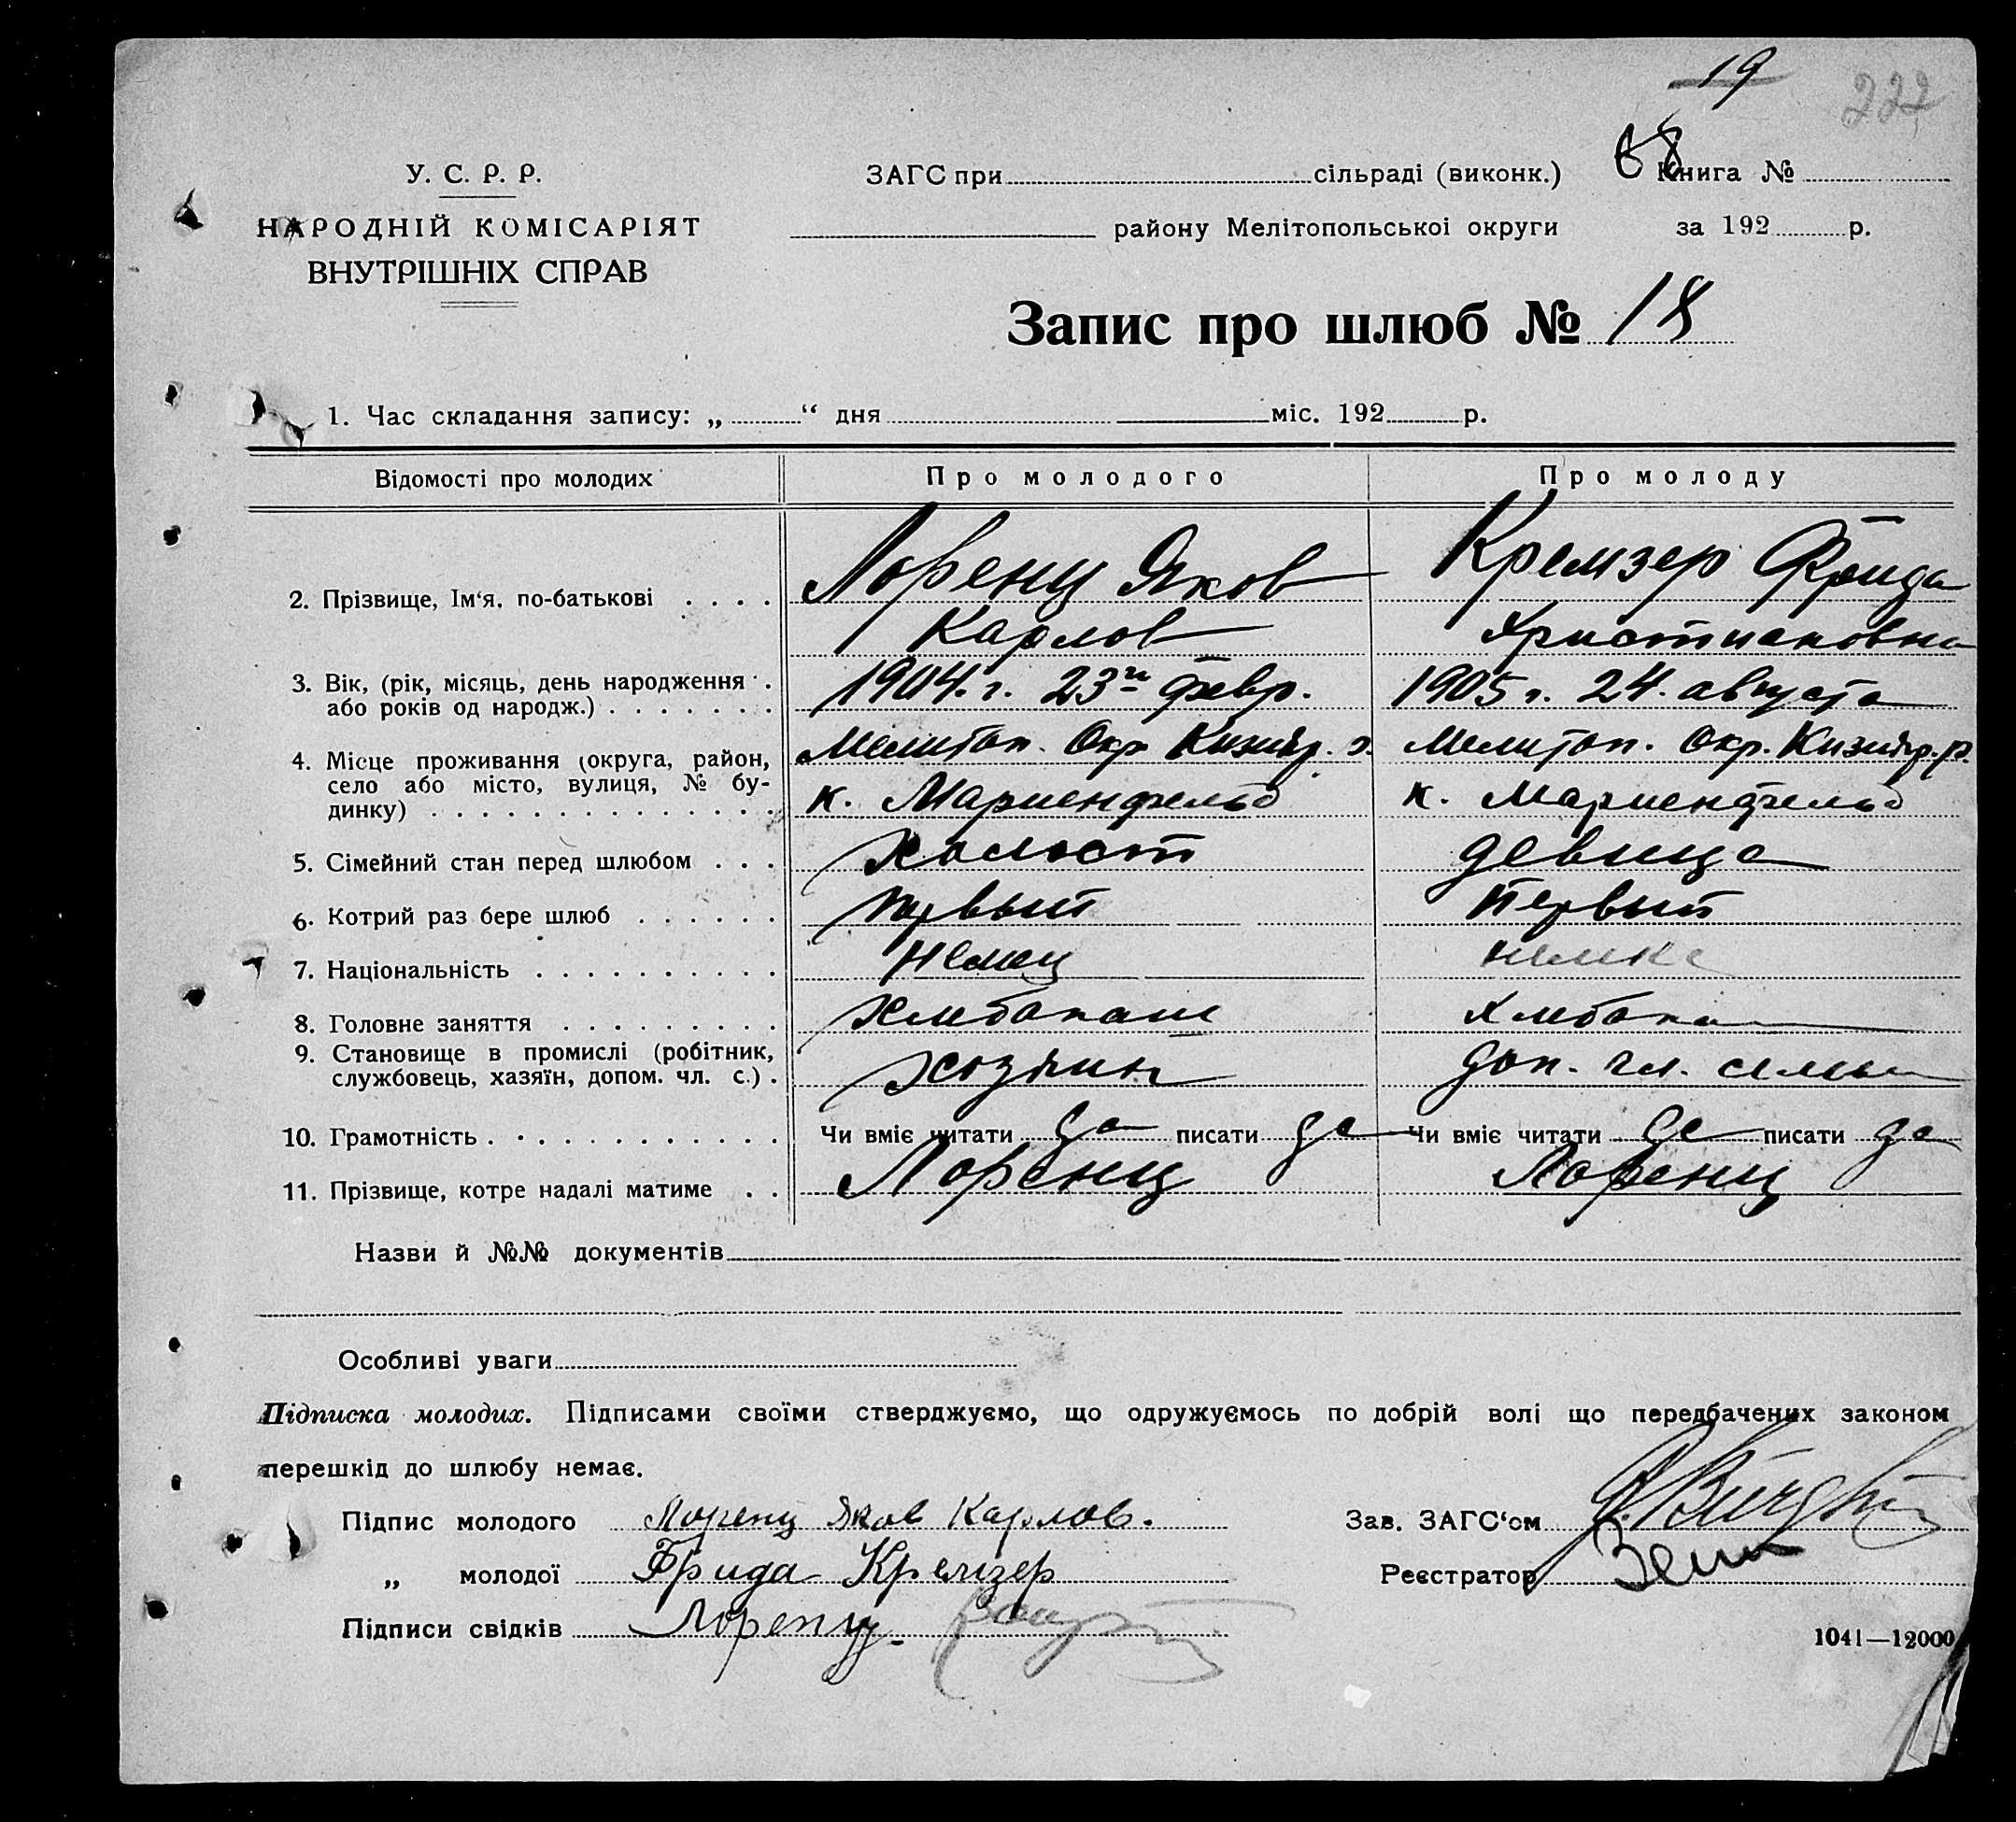 19
222
68
У. С. Р. Р.
НАРОДНІЙ КОМІСАРІЯТ
ВНУТРІШНІХ СПРАВ
ЗАГС при сільраді (виконк.) Книга №
району Мелітопольськоі округи за 192 р.
Запис про шлюб № 18
1. Час складання запису: „ “ дня міс. 192 р.
Відомості про молодих Про молодого Про молоду
2. Прізвище, Ім‘я, по-батькові . . . . Лоренц Яков Кремзер Фрида
Карлов Христиановна
3. Вік, (рік, місяць, день народження . 1904 г. 23го февр. 1905 г. 24. августа
або років од народж.) . . . . . . .
4. Місце проживання (округа, район, Мелитоп. Окр Кизияр. р. Мелитоп. Окр. Кизияр. р.
село або місто, вулиця, № бу-
динку) . . . . . . . . . . . . . . к. Мариенфельд к. Мариенфельд
5. Сімейний стан перед шлюбом . . . Холост девица
6. Котрий раз бере шлюб . . . . . . первый первый
7. Національність . . . . . . . . . . Немец немка
8. Головне заняття . . . . . . . . . Хлебопаш Хлебопа
9. Становище в промислі (робітник,
службовець, хазяїн, допом. чл. с.) . Хозяин доп. чл. семьи
10. Грамотність . . . . . . . . . . . . Чи вміє читати да писати да Чи вміє читати да писати да
11. Прізвище, котре надалі матиме . . Лоренц Лоренц
Назви й №№ документів
Особливі уваги
Підписка молодих. Підписами своїми стверджуємо, що одружуємось по добрій волі що передбачених законом
перешкід до шлюбу немає.
Підпис молодого Лоренц Яков Карлов. Зав. ЗАГС‘ом
„ молодої Фрида Кремзер Реєстратор
Підписи свідків Лоренц.
1041—12000